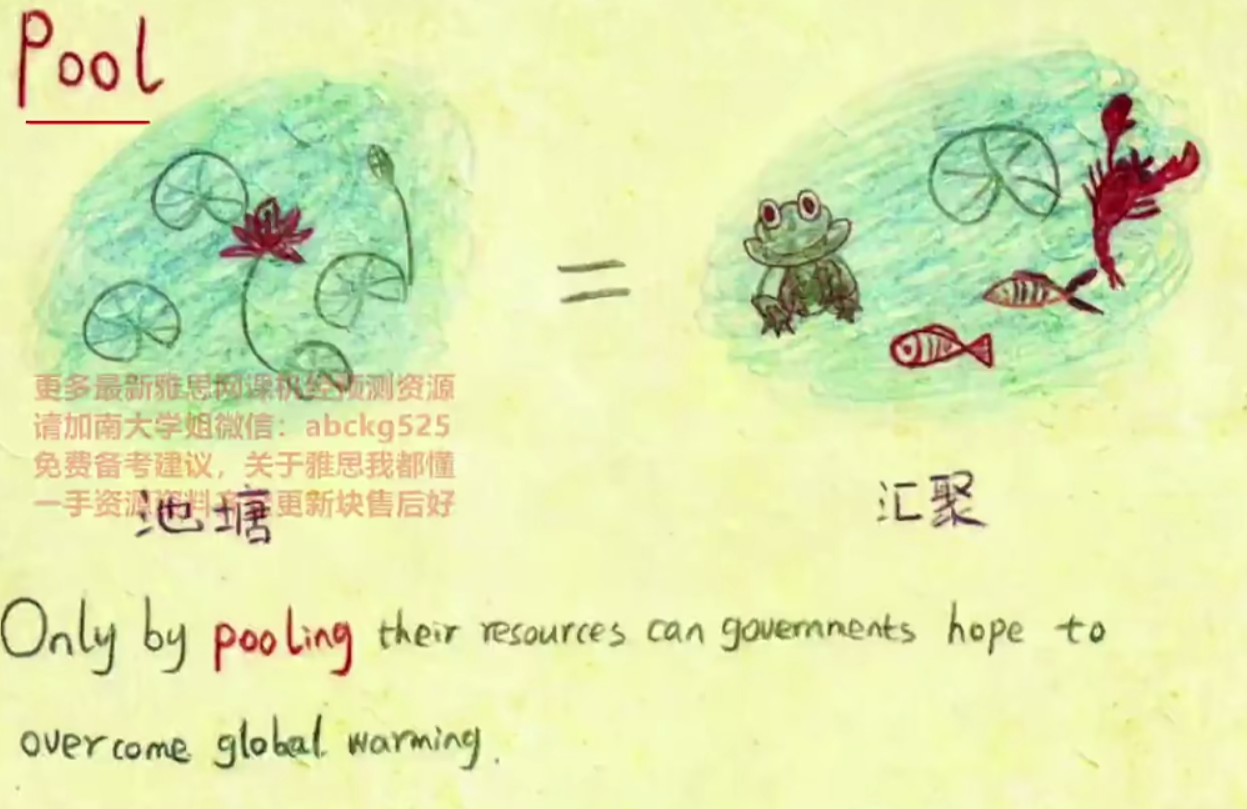 Pool
=
更多最新雅思网课机经预测资源
请加南大学姐微信：abckg525
免费备考建议，关于雅思我都懂
一手资源资料 更新块售后好
池塘
汇聚
Only by pooling their resources can governments hope to
overcome global warming.